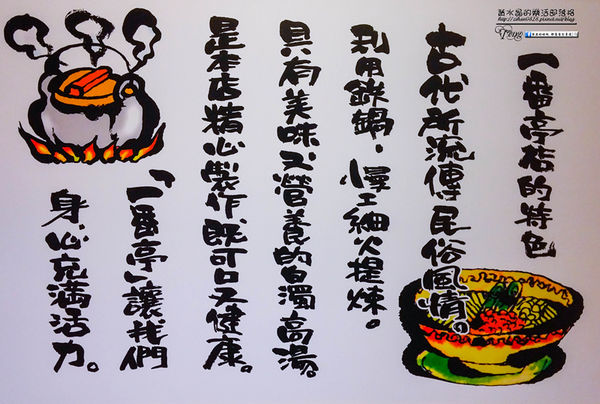 一番亭拉的特色
古代所流傳民俗風情。
利用鐵鍋，慢工細火提煉。
具有美味又營養的白濁高湯。
是本店精心製作，既可口又健康。
「一番亭」讓我們
身、心充滿活力。
藍水晶的樂活部落格